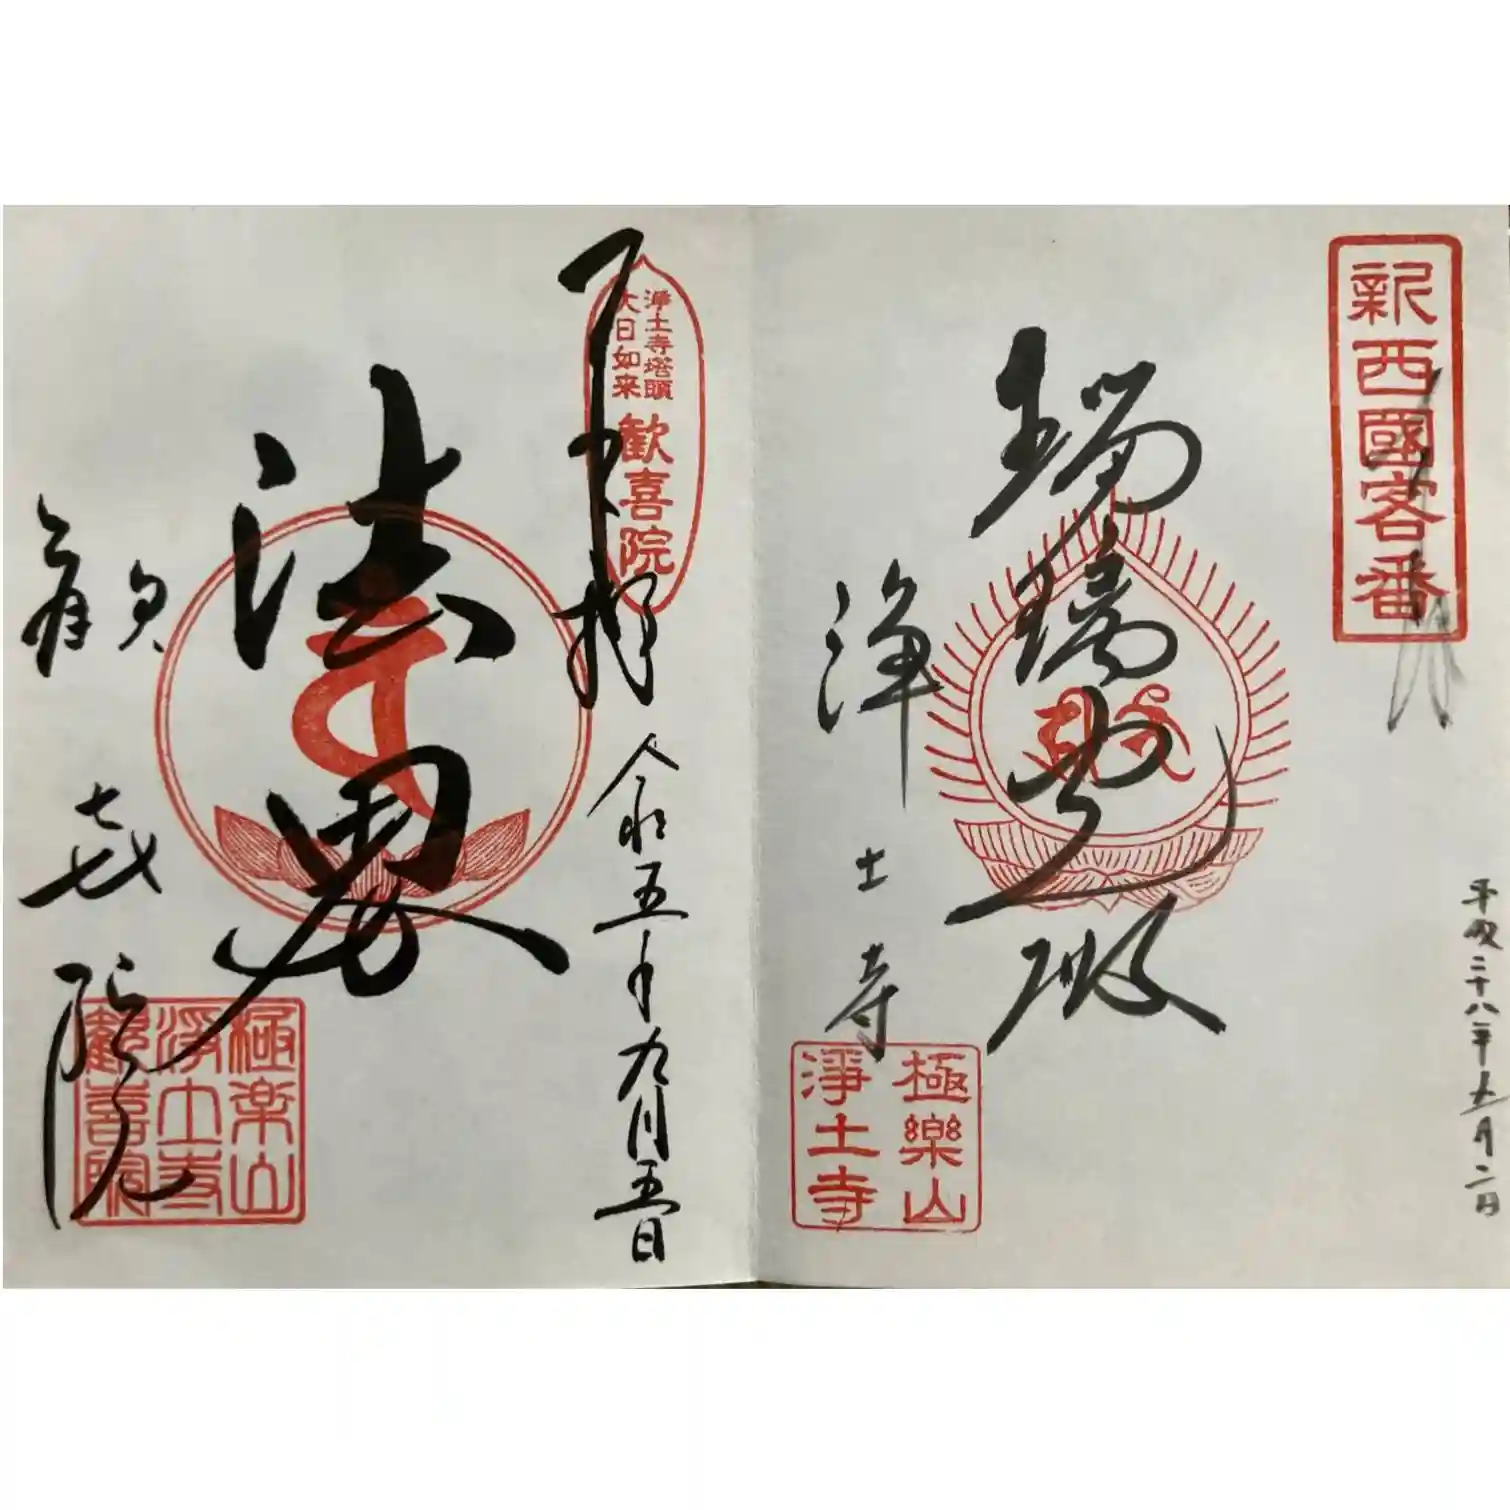 新西國客番
奉拝
平成二十八年五月二日
瑠璃光殿
浄土寺
極樂山
淨土寺
奉拝
浄土寺塔頭
大日如来
歓喜院
令和五年九月五日
法界
歓喜院
極楽山
浄土寺
歓喜院